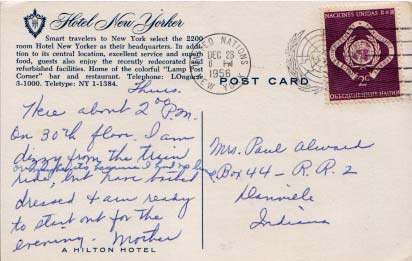 Hotel New Yorker
Smart travelers to New York select the 2200
room Hotel New Yorker as their headquarters. In addition
to its central location, excellent service and superb
food, guests also enjoy the recently redecorated and
refurbished facilities. Home of the colorful "Lamp Post
Corner" bar and restaurant. Telephone: LOngacre
3-1000. Teletype: NY 1-1384.
Thurs.
Here about 2 P.M.
On 30th floor. I am
dizzy from the train
ride, but have bathed
dressed & am ready
to start out for the
evening. Mother
A HILTON HOTEL
UNITED NATIONS
DEC 28
6 PM
1956
NEW YORK
POST CARD
NACIONES UNIDAS
UNITED NATIONS
2c
Mrs. Paul Alward
Box 44 - R.R. 2
Danville
Indiana